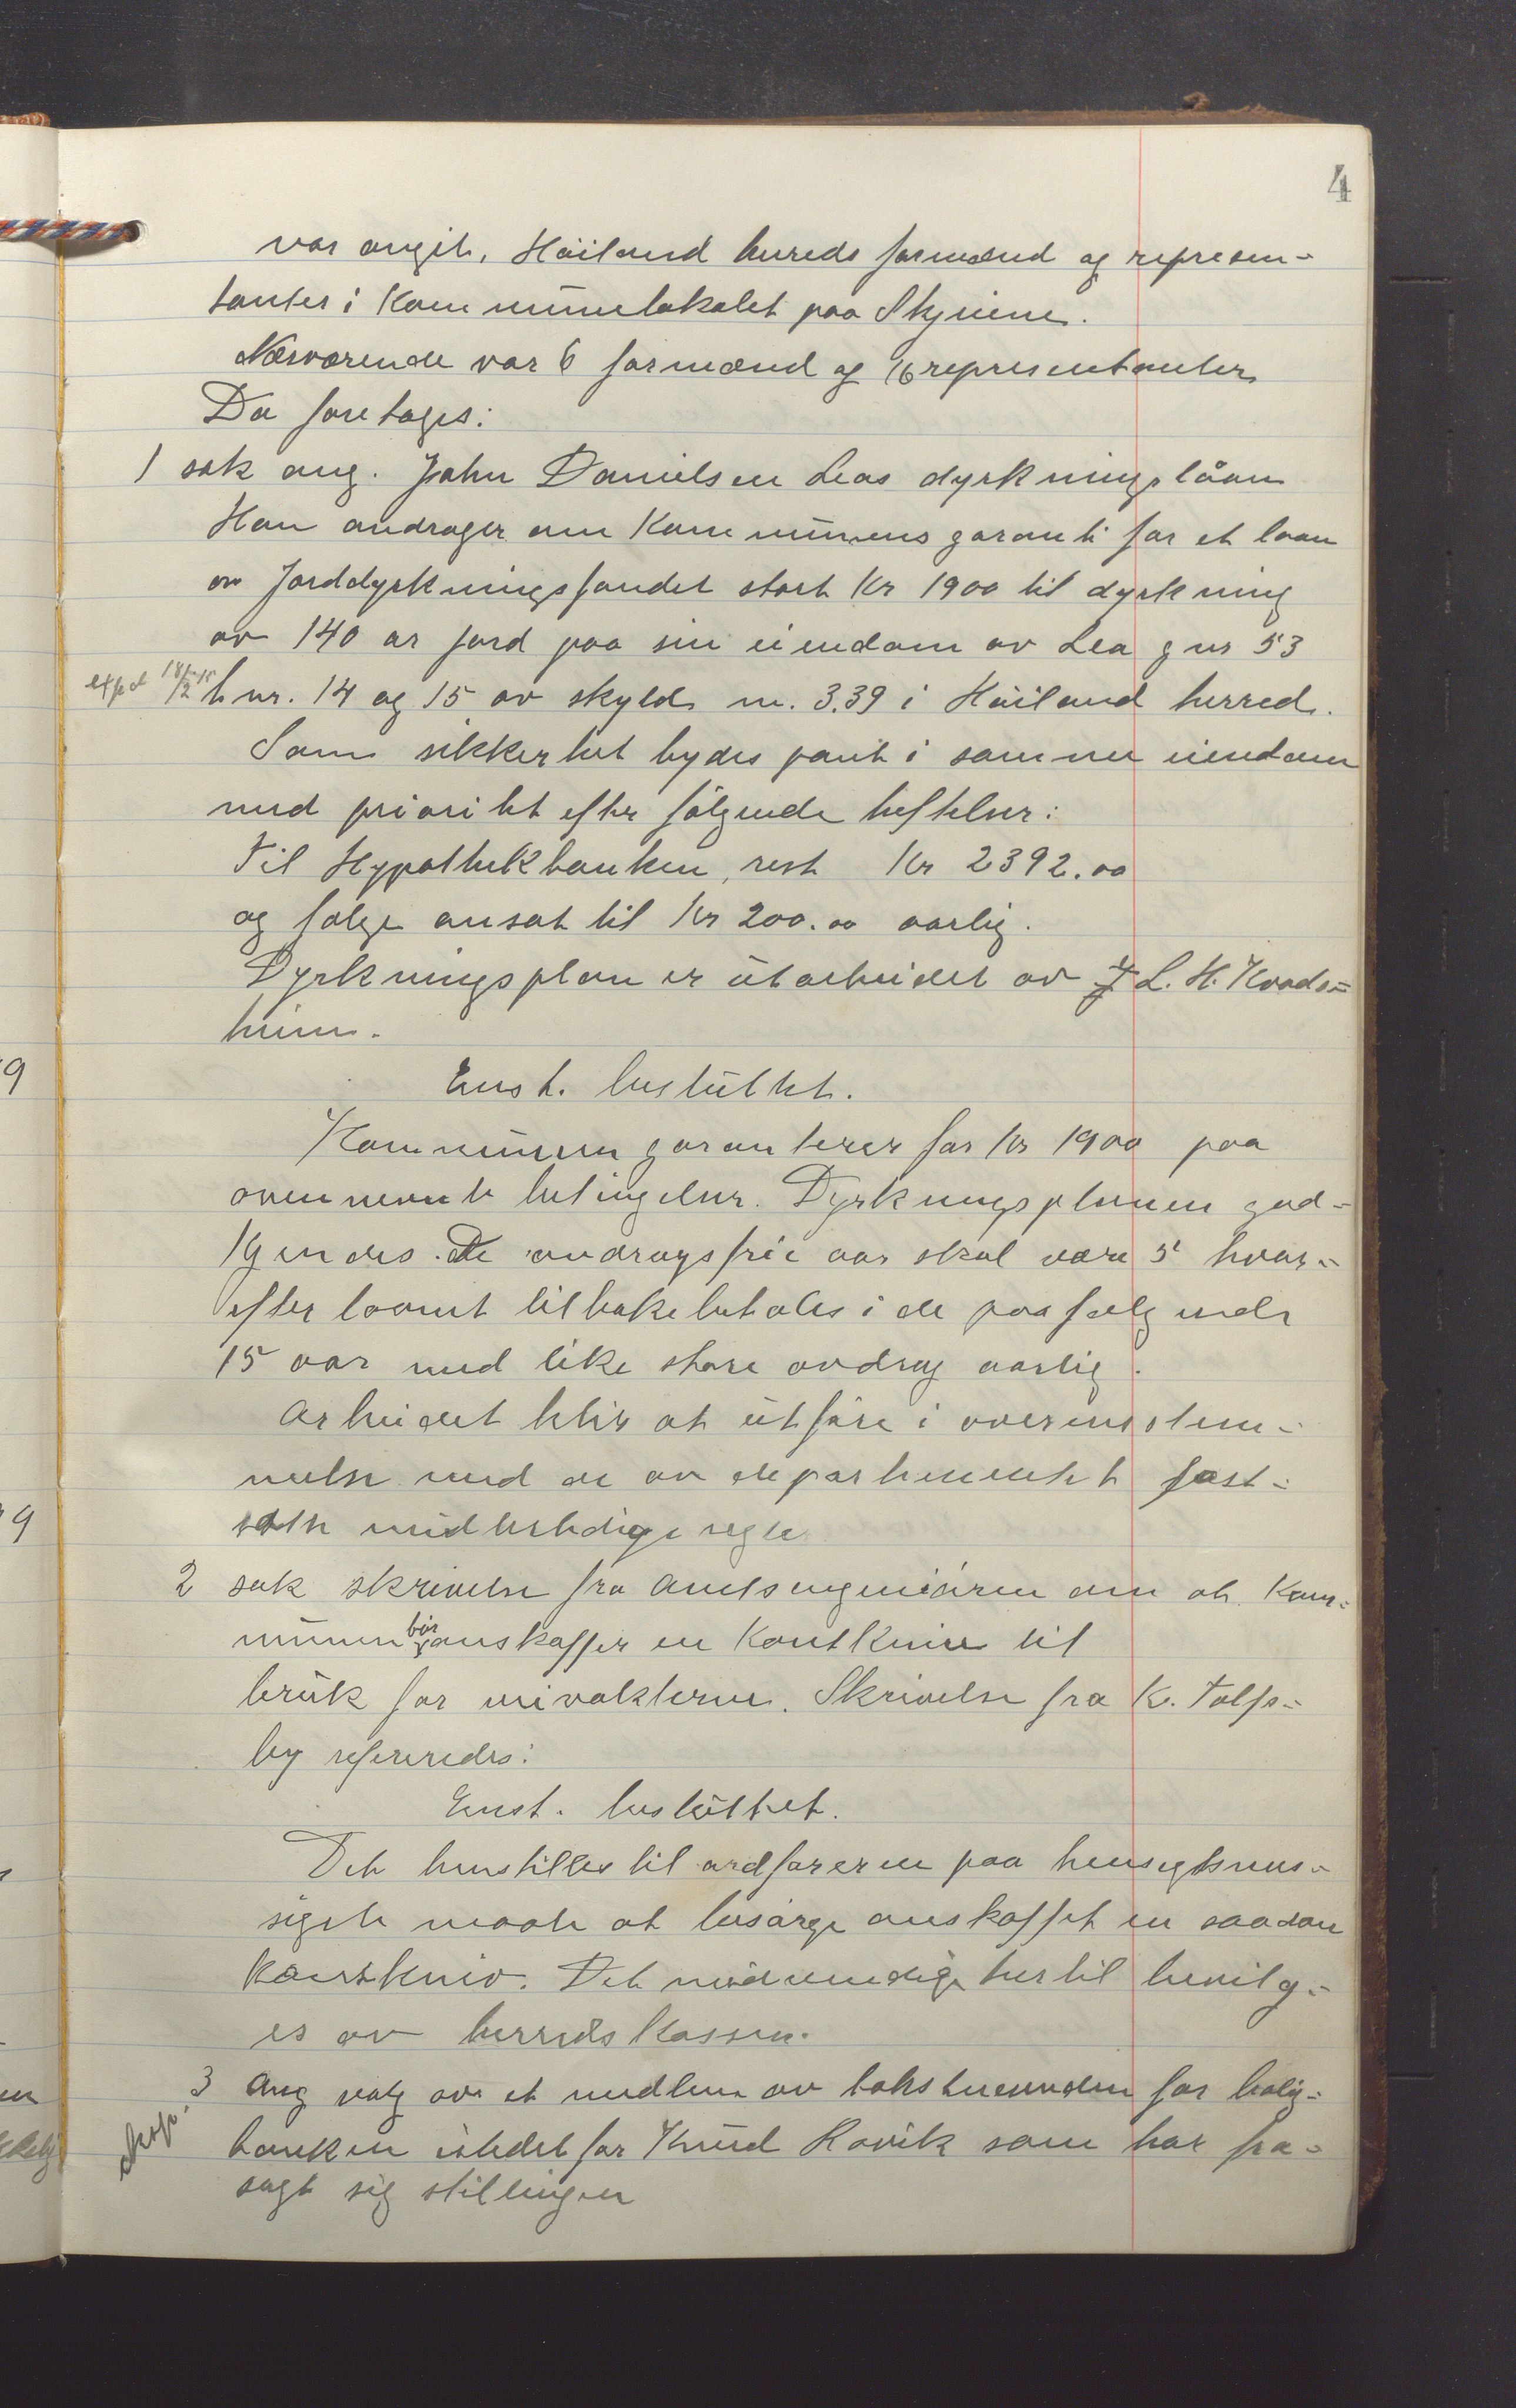 4
var angit, Høiland herreds formænd og represen-
tanter i Kommunelokalet paa Skjeiene.
Nærværende var 6 formænd og 16 representanter
Da foretages:
1 sak ang. John Danielsen Leas dyrkningslåan
Han andrager om Kommunens garanti for et laan
av Jorddyrkningsfondet stort Kr 1900 til dyrkning
av 140 ar jord paa sin eiendom av Lea gnr 53
bnr. 14 og 15 av skyld m. 3.39 i Høiland herred.
Som sikkerhet bydes pant i samme eiendom
med prioritet efter følgende heftelser:
Til Hypothekbanken, rest Kr 2392.00
og følge ansat til Kr 200.00 aarlig.
Dyrkningsplan er utarbeidet av L. H. Kvads-
heim.
Enst. besluttet.
Kommunen garanterer for Kr 1900 paa
ovennevnte betingelser. Dyrkningsplanen god-
kjendes. De avdragsfrie aar skal være 5 hvor-
efter laanet tilbakebetales i de paafølgende
15 aar med like store avdrag aarlig.
Arbeidet blir at utføre i overensstem-
melse med de av departementet fast-
satte midlertidige regle
2 sak skrivelse fra Amtsingeniøren om at Kom-
munen bør anskaffer en Kantkniv til
bruk for veivokterne. Skrivelse fra K. Tolfs-
by refereredes:
Enst. besluttet.
Det henstilles til ordføreren paa hensigtsmes-
sigste maate at besørge anskaffet en saadan
Kantkniv. Det nødvendige hertil bevilg-
es av herredskassen.
3 Ang valg av et medlem av takstnevnden for bolig-
banken istedet for Knud Rovik som har fra-
sagt sig stillingen
eksp.
9
9